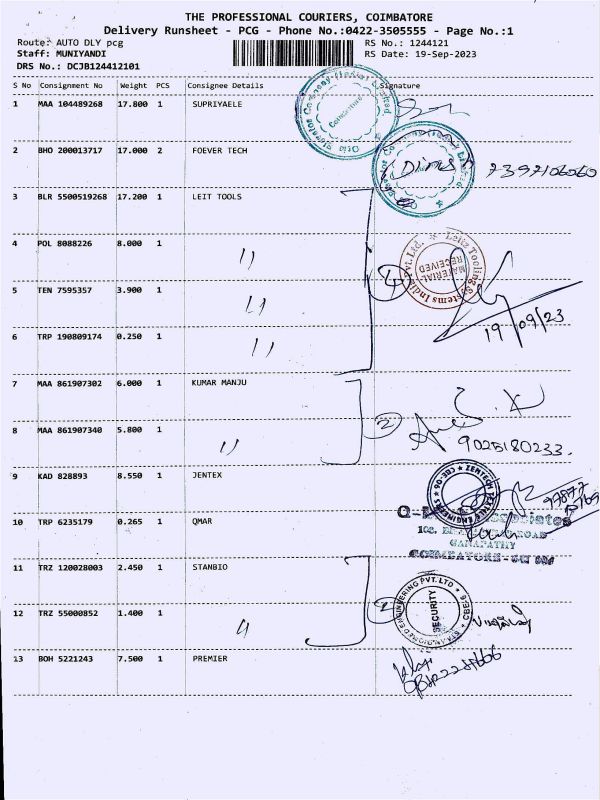 THE PROFESSIONAL COURIERS, COIMBATORE
Delivery Runsheet - PCG - Phone No.:0422-3505555 - Page No.:1
Route: AUTO DLY pcg RS No.: 1244121
Staff: MUNIYANDI RS Date: 19-Sep-2023
DRS No.: DCJB124412101
S No Consignment No Weight PCS Consignee Details Signature
1 MAA 104489268 17.800 1 SUPRIYAELE
2 BHO 200013717 17.000 2 FOEVER TECH
7397106060
3 BLR 5500519268 17.200 1 LEIT TOOLS
4 POL 8088226 8.000 1 "
4
Leitz Tooling Systems India Pvt. Ltd.
MATERIAL RECEIVED
5 TEN 7595357 3.900 1 "
19/09/23
6 TRP 190809174 0.250 1 "
7 MAA 861907302 6.000 1 KUMAR MANJU
2
8 MAA 861907340 5.800 1 "
9025180233.
9 KAD 828893 8.550 1 JENTEX
10 TRP 6235179 0.265 1 QMAR
GANAPATHY
11 TRZ 120028003 2.450 1 STANBIO
ENGINEERING PVT. LTD
SECURITY
12 TRZ 55000852 1.400 1 "
13 BOH 5221243 7.500 1 PREMIER